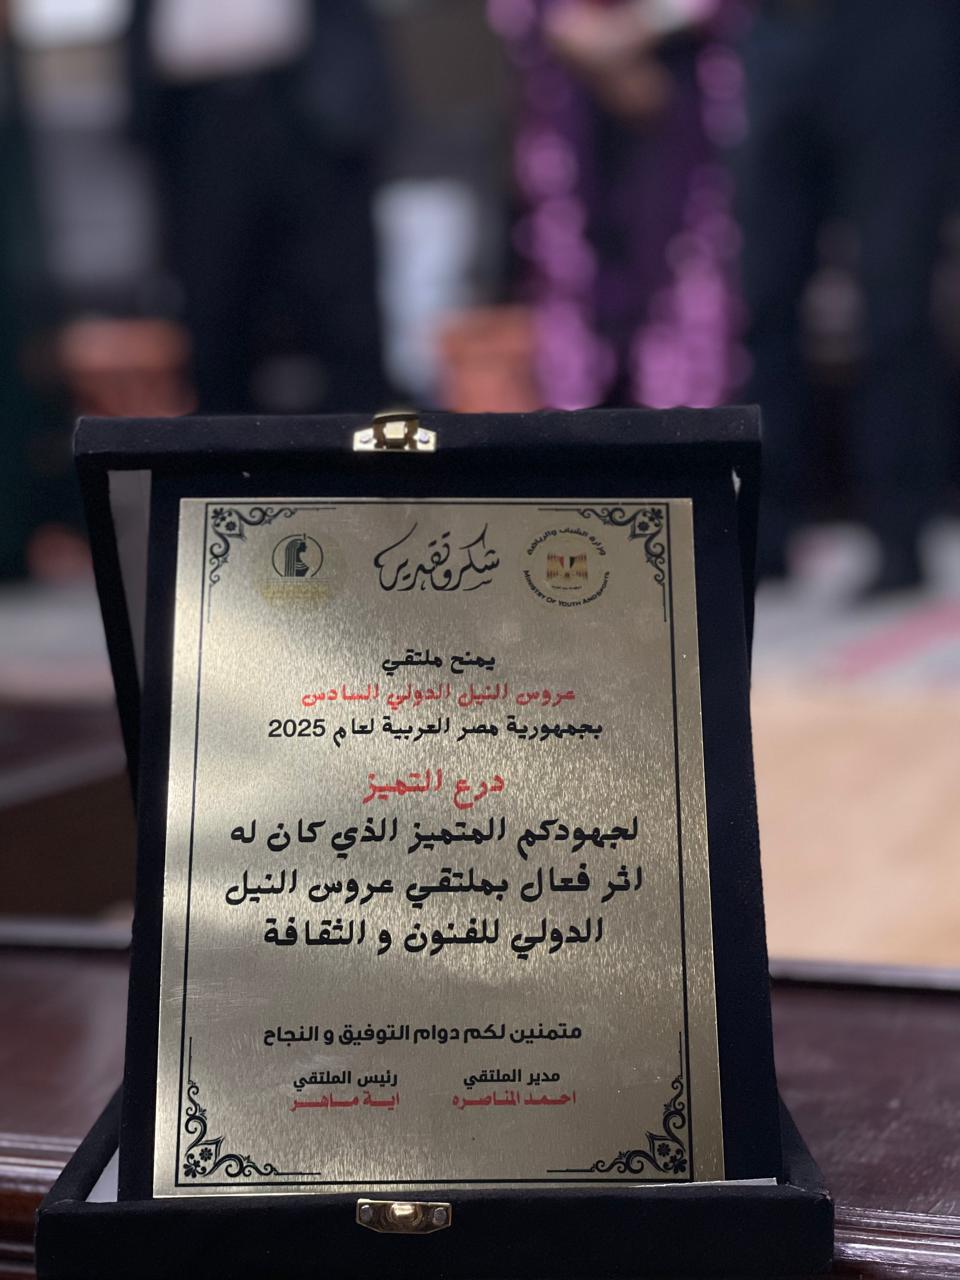 شكر وتقدير
وزارة الشباب والرياضة
MINISTRY OF YOUTH AND SPORTS
يمنح ملتقي
عروس النيل الدولي السادس
بجمهورية مصر العربية لعام 2025
درع التميز
لجهودكم المتميز الذي كان له
اثر فعال بملتقي عروس النيل
الدولي للفنون و الثقافة
متمنين لكم دوام التوفيق و النجاح
مدير الملتقي
احمد المناصره
رئيس الملتقي
اية ماهر